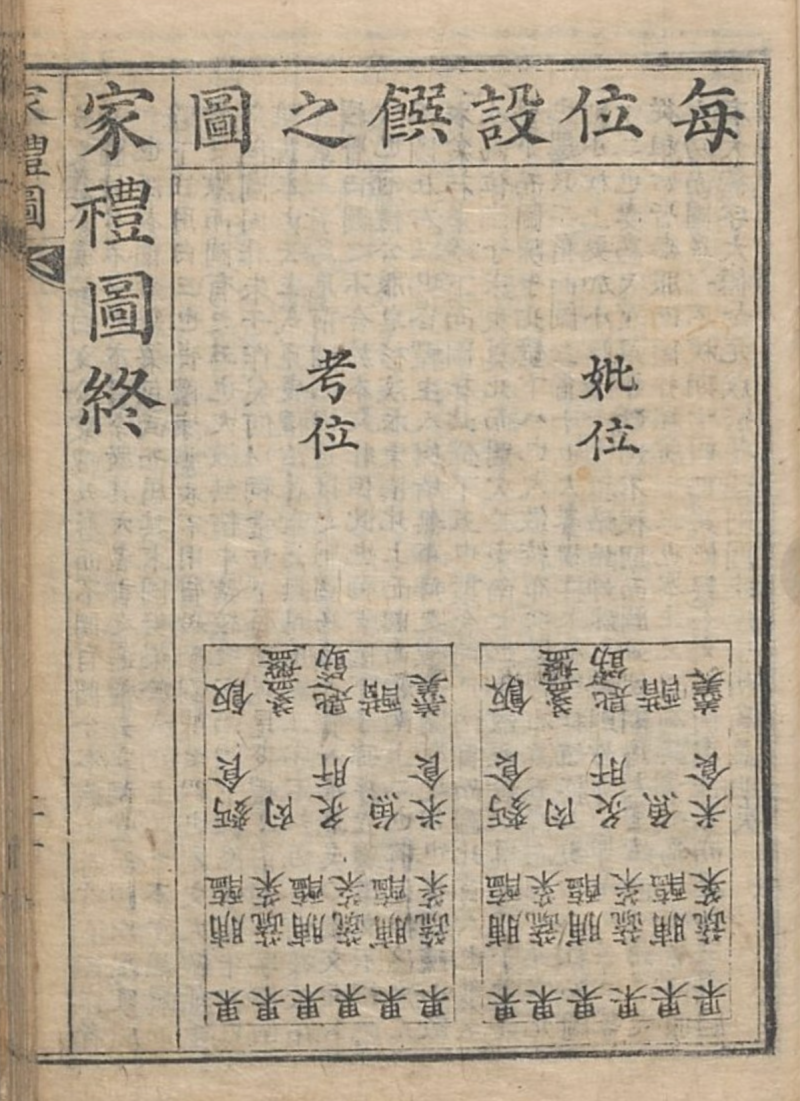 每位設饌之圖
妣位
飯 盞盤 匙筯 醋 羹
麪食 肉 炙肝 魚 米食
脯醢 蔬菜 脯醢 蔬菜 脯醢 蔬菜
果 果 果 果 果 果
考位
飯 盞盤 匙筯 醋 羹
麪食 肉 炙肝 魚 米食
脯醢 蔬菜 脯醢 蔬菜 脯醢 蔬菜
果 果 果 果 果 果
家禮圖終
家禮圖